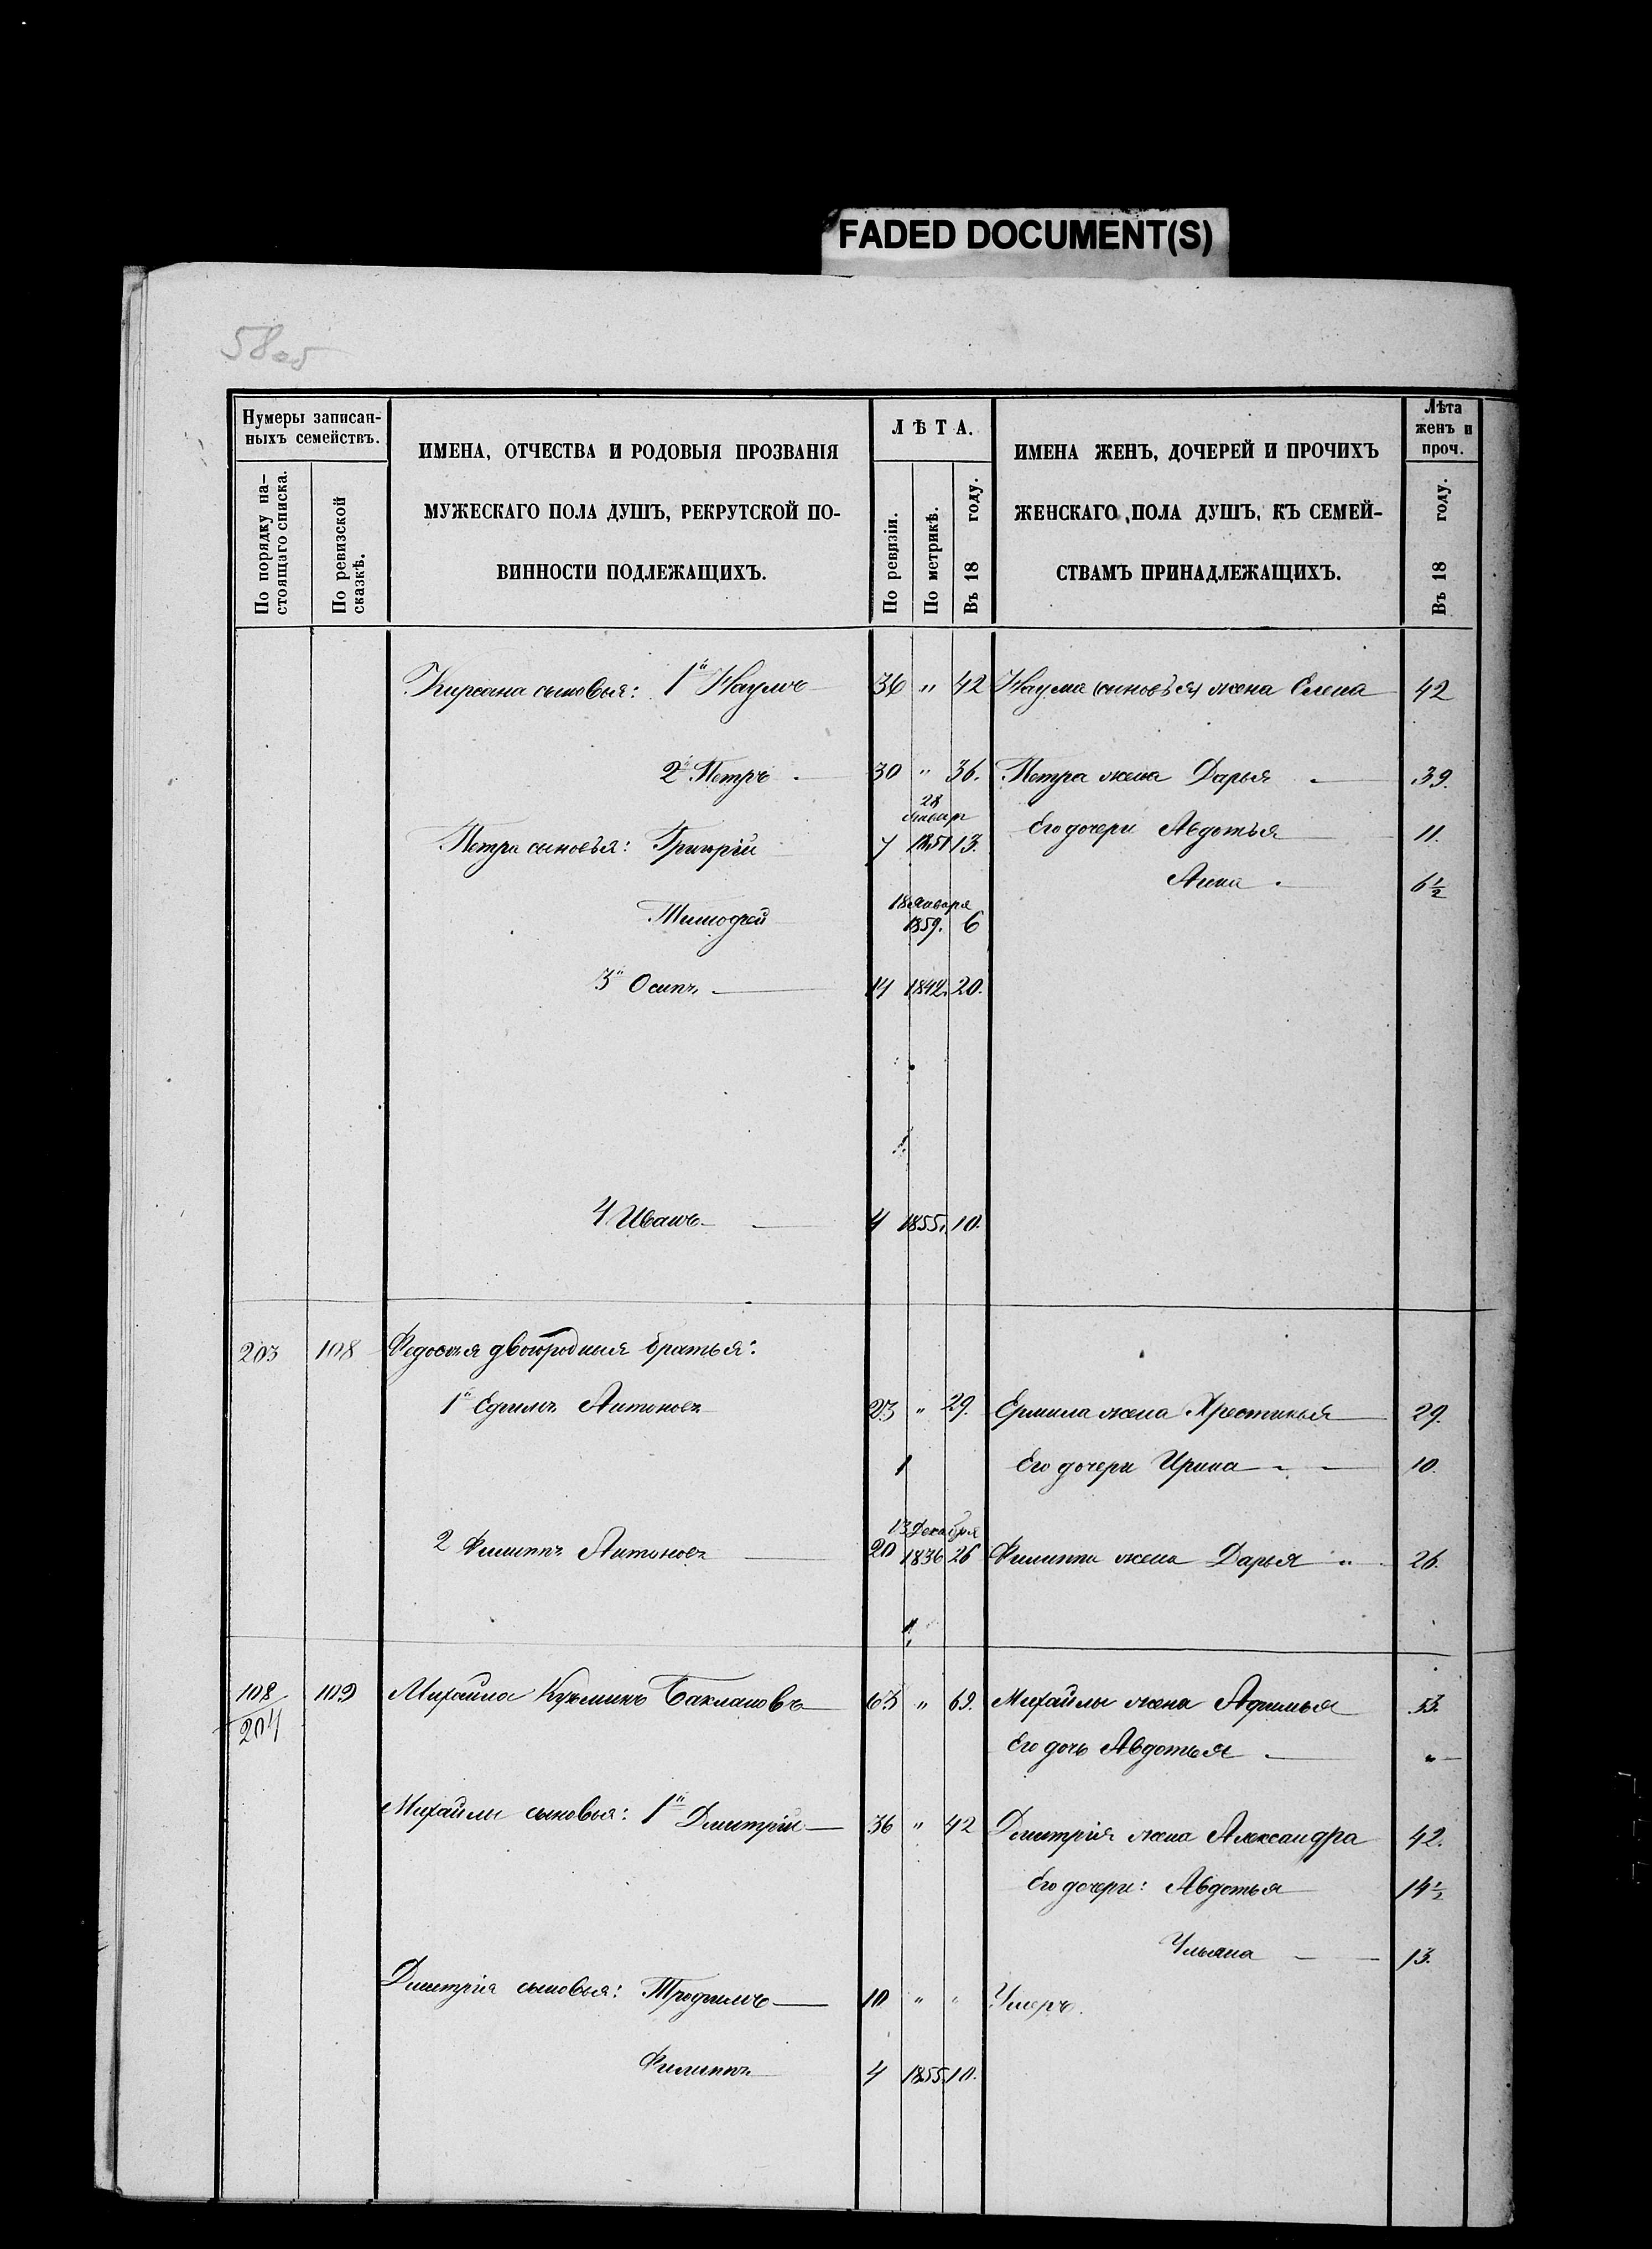 FADED DOCUMENT(S)
58об
Нумеры записан-
ныхъ семействъ.
По порядку на-
стоящаго списка.
По ревизской
сказкѣ.
ИМЕНА, ОТЧЕСТВА И РОДОВЫЯ ПРОЗВАНІЯ
МУЖЕСКАГО ПОЛА ДУШЪ, РЕКРУТСКОЙ ПО-
ВИННОСТИ ПОДЛЕЖАЩИХЪ.
ЛѢТА.
По ревизіи.
По метрикѣ.
Въ 18 году.
ИМЕНА ЖЕНЪ, ДОЧЕРЕЙ И ПРОЧИХЪ
ЖЕНСКАГО ПОЛА ДУШЪ, КЪ СЕМЕЙ-
СТВАМЪ ПРИНАДЛЕЖАЩИХЪ.
Лѣта
женъ и
проч.
Въ 18 году.
Кирсана сыновья: 1й Наумъ 36 " 42 Наума (сыновья) жена Елена 42
2й Петръ 30 " 36. Петра жена Дарья 39.
28
Январ
Петра сыновья: Григорій 7 1851 13. Его дочери Авдотья 11.
Анна 6½
18 Января
Тимофей 1859. 6
3й Осипъ 14 1842. 20.
4 Иванъ 4 1855. 10.
203 108 двоюродныя братья:
1й Ефимъ Антоновъ 23 " 29. Ермила жена Хрестинья 29.
1 Его дочери Ирина 10.
13 Декабря
2 Филиппъ Антоновъ 20 1836 26 Филиппа жена Дарья " 26.
108/204 109 Михайла Кузьминъ Баклановъ 63 " 69. Михайлы жена Афимья 53.
Его дочь Авдотья "
Михайлы сыновья: 1й Дмитрій 36 " 42 Дмитрія жена Александра 42.
Его дочери: Авдотья 14½
Ульяна 13.
Дмитрія сыновья: Трофимъ 10 " " Умеръ.
Филиппъ 4 1855. 10.